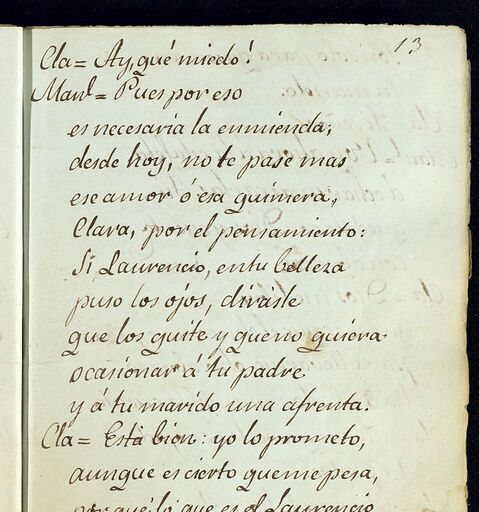 13
Cla= Ay, qué miedo!
Manl= Pues por eso
es necesaria la enmienda;
desde hoy, no te pase mas
ese amor ó esa quimera,
Clara, por el pensamiento:
Si, Laurencio, en tu belleza
puso los ojos, dirásle
que los quite y que no quiera
ocasionar á tu padre
y á tu marido una afrenta.
Cla= Está bien: yo lo prometo,
aunque es cierto que me pesa,
por qué lo que es el Laurencio